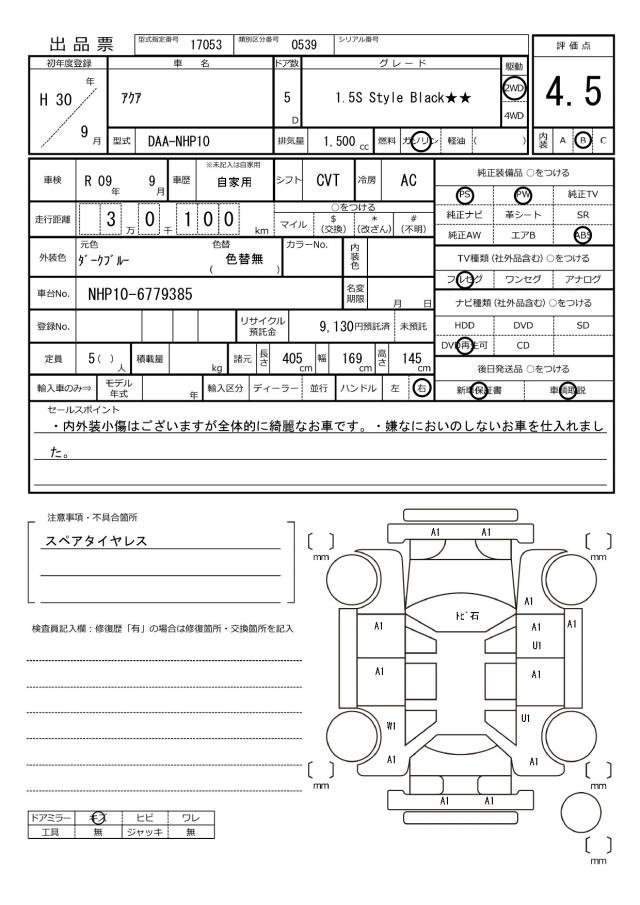 出品票
型式指定番号 17053 類別区分番号 0539 シリアル番号
評価点
4.5
内装 A B C
初年度登録 車名 ドア数 グレード 駆動
H 30 年 9 月
ｱｸｱ
5 D
1.5S Style Black★★
2WD
4WD
型式 DAA-NHP10 排気量 1,500 cc 燃料 ガソリン 軽油 ( )
車検 R 09 年 9 月 車歴 ※未記入は自家用 自家用 シフト CVT 冷房 AC
走行距離 3 万 0 千 1 0 0 km
○をつける
マイル $ (交換) * (改ざん) # (不明)
外装色 元色 ﾀﾞｰｸﾌﾞﾙｰ 色替 ( 色替無 ) カラーNo. 内装色
車台No. NHP10-6779385 名変期限 月 日
登録No. リサイクル預託金 9,130円預託済 未預託
定員 5 ( ) 人 積載量 kg 諸元 長さ 405 cm 幅 169 cm 高さ 145 cm
輸入車のみ⇒ モデル年式 年 輸入区分 ディーラー 並行 ハンドル 左 右
純正装備品 ○をつける
PS PW 純正TV
純正ナビ 革シート SR
純正AW エアB ABS
TV種類(社外品含む) ○をつける
フルセグ ワンセグ アナログ
ナビ種類(社外品含む) ○をつける
HDD DVD SD
DVD再生可 CD
後日発送品 ○をつける
新車保証書 車輌取説
セールスポイント
・内外装小傷はございますが全体的に綺麗なお車です。・嫌なにおいのしないお車を仕入れまし
た。
注意事項・不具合箇所
スペアタイヤレス
検査員記入欄：修復歴「有」の場合は修復箇所・交換箇所を記入
ドアミラー キズ ヒビ ワレ
工具 無 ジャッキ 無
A1 A1
mm mm
A1
ﾄﾋﾞ石
A1 A1 A1
U1
A1 A1
W1 U1
A1 A1
mm mm
A1 A1
mm